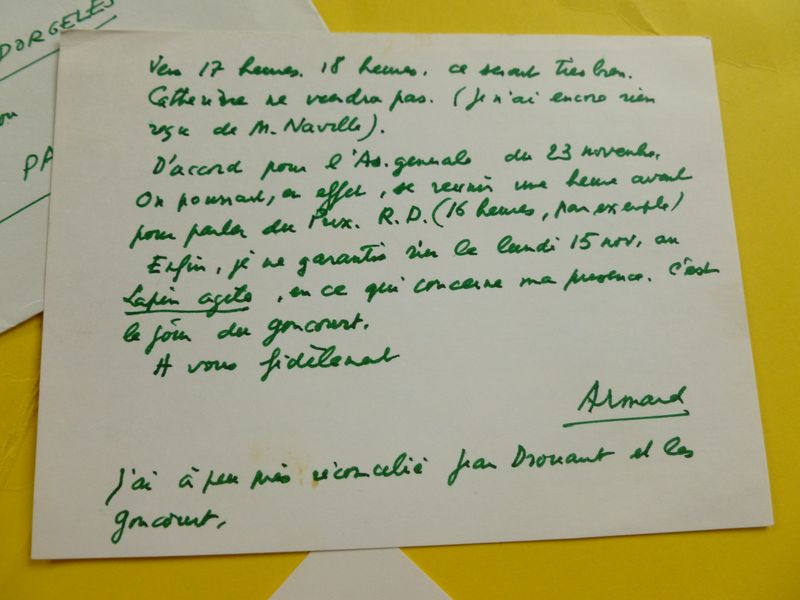 DORGELÈS
on
PA
Vers 17 heures, 18 heures, ce serait très bien.
Catherine ne viendra pas. (Je n'ai encore rien
reçu de M. Naville).
D'accord pour l'As. generale du 23 novembre.
On pourrait, en effet, se reunir une heure avant
pour parler du Prix. R.D. (16 heures, par exemple)
Enfin, je ne garantis rien le lundi 15 nov, au
Lapin agile, en ce qui concerne ma presence. C'est
le jour du goncourt.
A vous fidèlement
Armand
J'ai à peu près réconcilié Jean Drouant et les
goncourt.